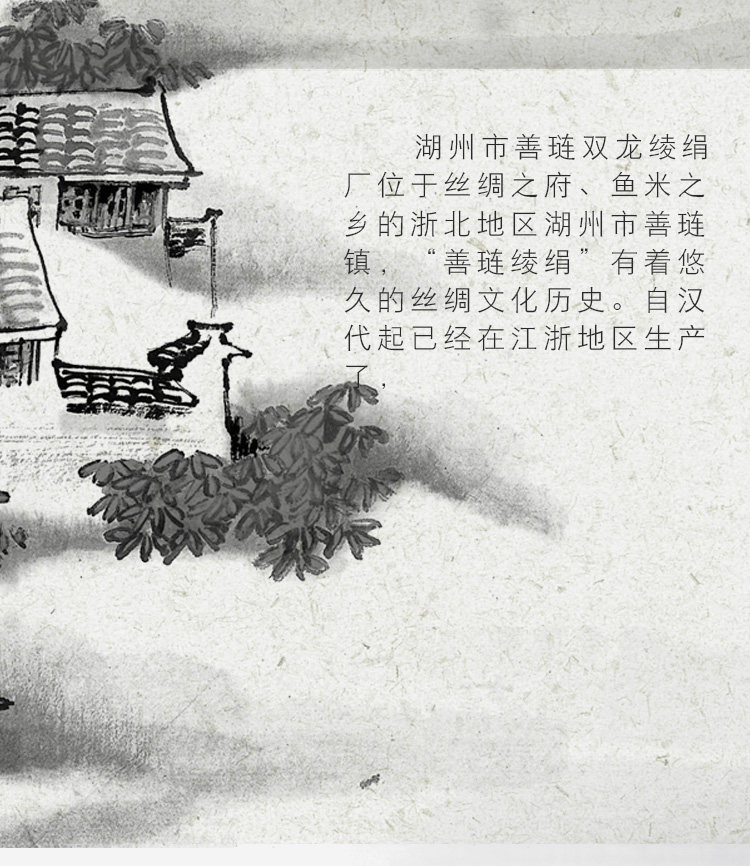 湖州市善琏双龙绫绢
厂位于丝绸之府、鱼米之
乡的浙北地区湖州市善琏
镇，“善琏绫绢”有着悠
久的丝绸文化历史。自汉
代起已经在江浙地区生产
了，